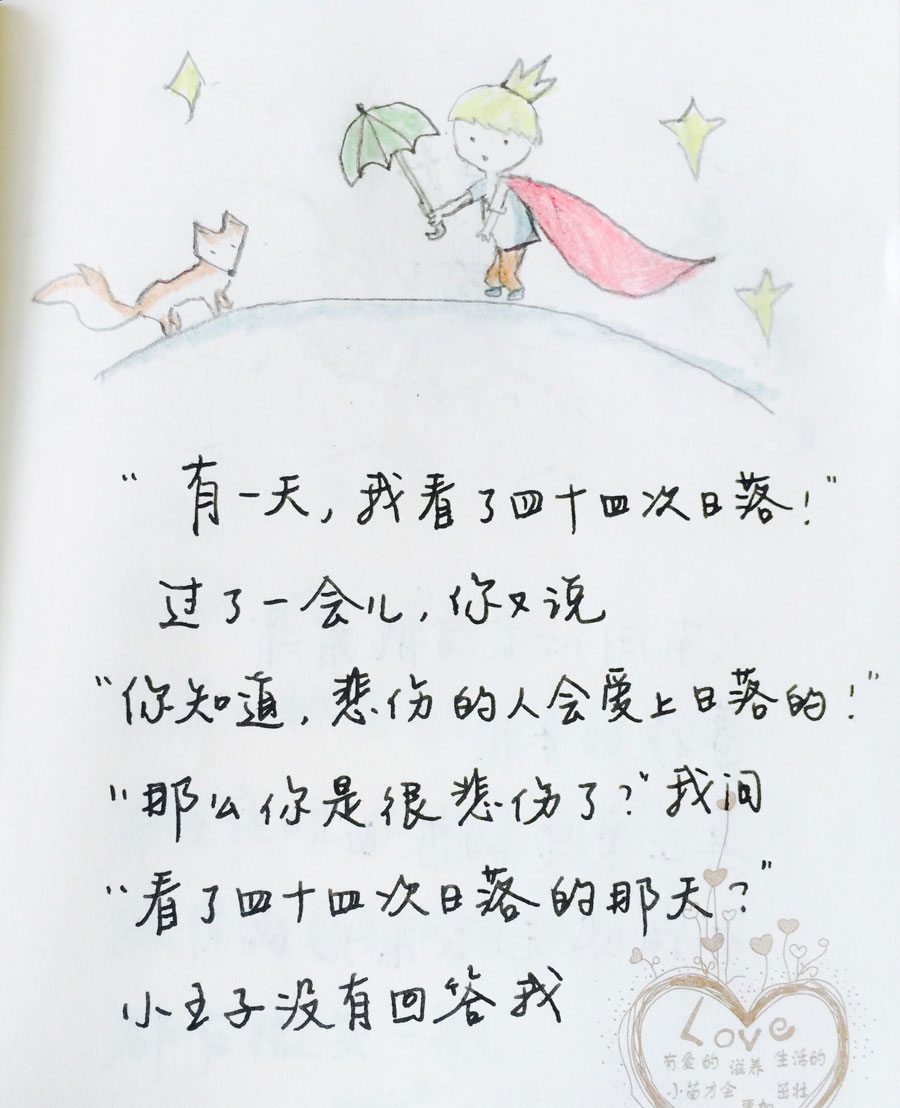 “有一天，我看了四十四次日落！”
过了一会儿，你又说
“你知道，悲伤的人会爱上日落的！”
“那么你是很悲伤了？”我问
“看了四十四次日落的那天？”
小王子没有回答我
Love
有爱的 滋养 生活的
小苗才会 茁壮
更加